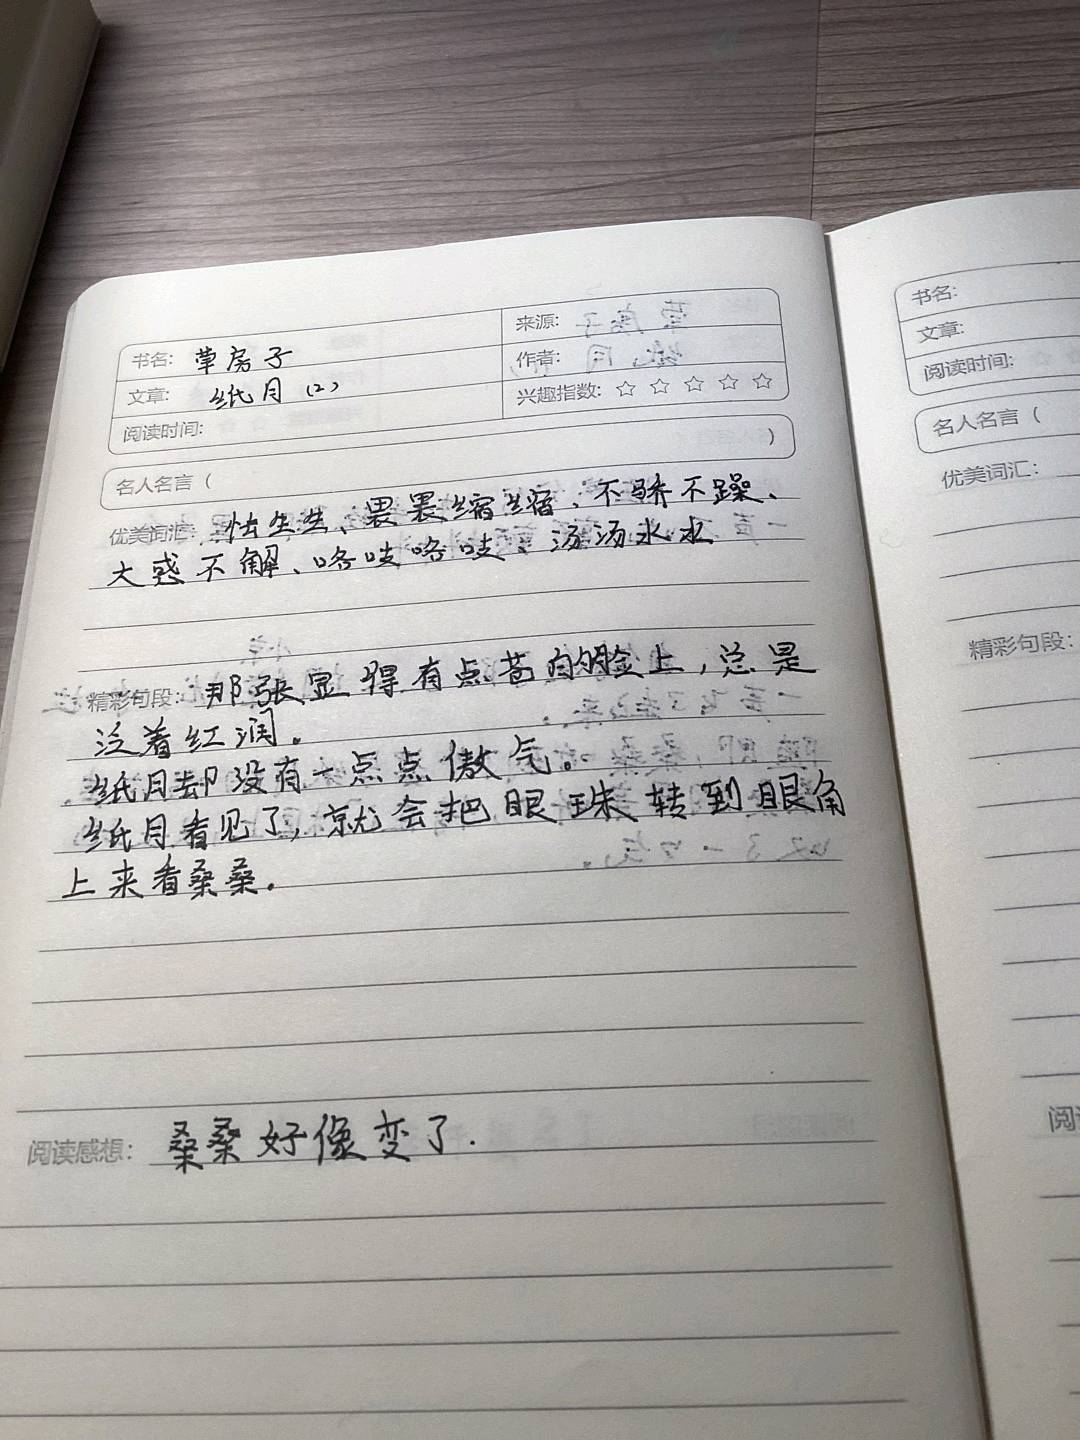 书名: 草房子
来源:
文章: 纸月(2)
作者:
阅读时间:
兴趣指数: ☆ ☆ ☆ ☆ ☆
名人名言 ( )
优美词汇: 怯生生、畏畏缩缩、不骄不躁、
大惑不解、咯吱咯吱、汤汤水水
精彩句段: 那张显得有点苍白的脸上，总是
泛着红润。
纸月却没有一点点傲气。
纸月看见了，就会把眼珠转到眼角
上来看桑桑.
阅读感想: 桑桑好像变了.
书名:
文章:
阅读时间:
名人名言 (
优美词汇:
精彩句段: